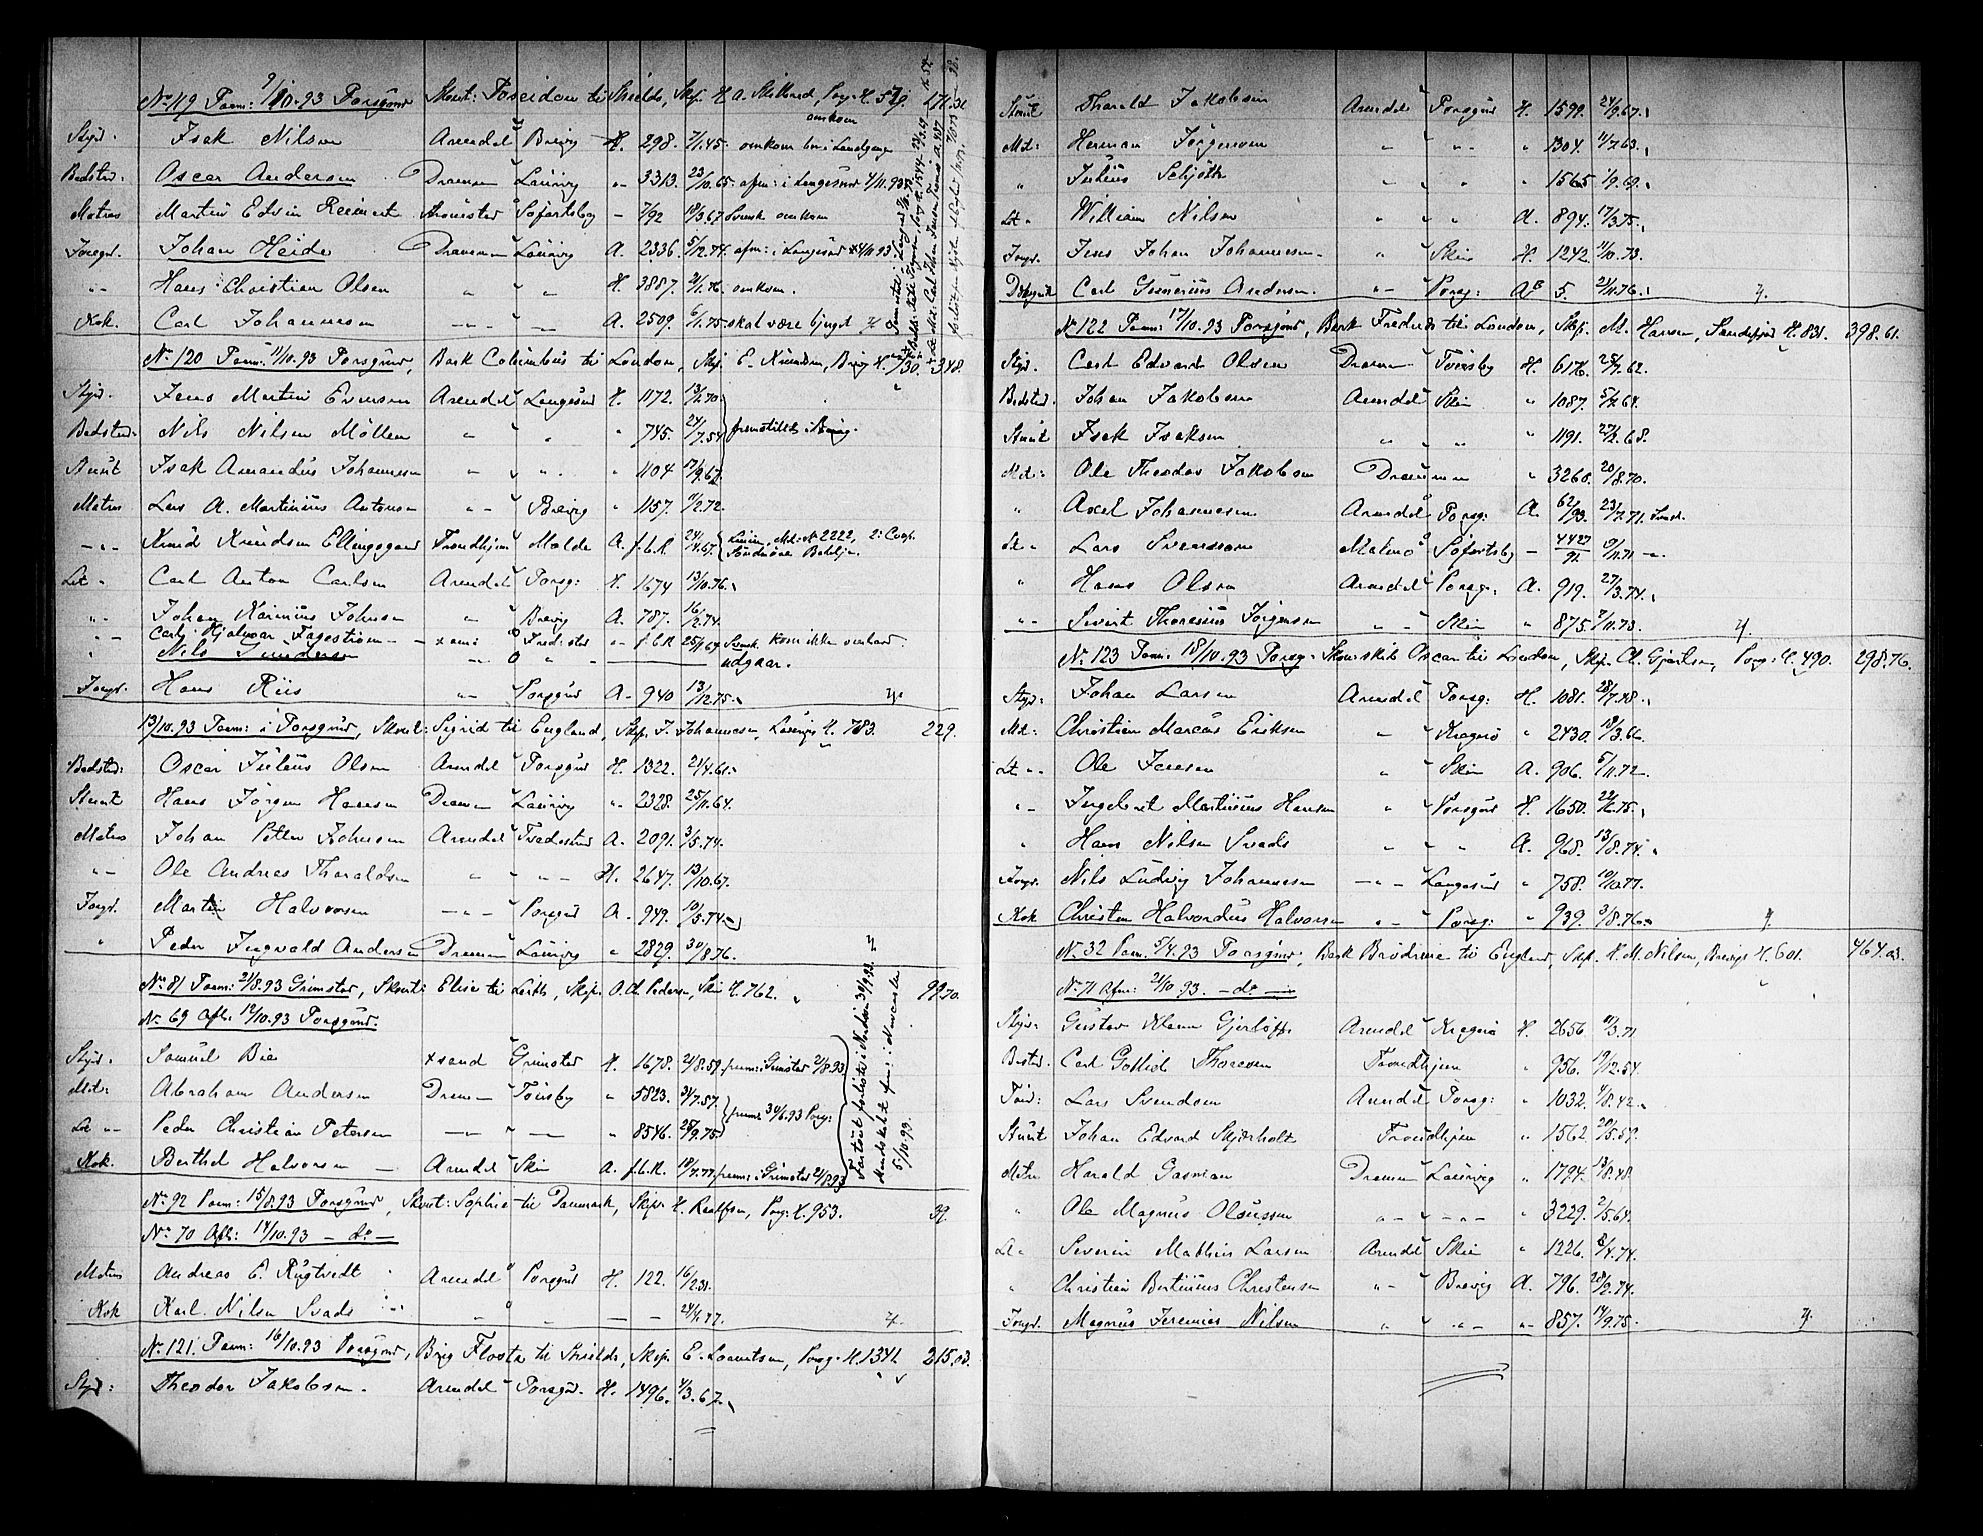 No 119 Paam: 9/10.93 Porsgrund Skonst: Poseidon til Shields, Skp. H. A. Porsg. H. 579. 271.
omkom
Styrd. Isak Nilsen Arendal Brevig H. 298. 7/1.45. omkom
Bedsted. Oscar Andersen Drammen Laurvig " 3313. 23/10.65. afm: i Langesund 4/11.93
Matros Martin Edvin Reimert Søfartsby - 7/92 18/3.67 Svensk omkom
Jungd. Johan Heide Drammen Laurvig A. 2336. 5/12.74. afm: i Langesund 4/11.93
" - Hans Christian Olsen " " H. 3887. 2/1.76. omkom.
Kok. Carl Johannesen " " A. 2509. 6/1.75. skal være bjerget
No 120 Paam: 11/10.93 Porsgrund, Bark Columbus til London, Skp. E. Knudsen, Brevig H. 30. 348.
Styrd. Jens Martin Evensen Arendal Langesund H. 1172. 13/2.70.
Bedsted. Nils Nilsen Möller " " " 745. 24/7.54 fremstilles i Brevig.
Stuert Isak Amandus Johannesen " " " 1104 17/9.67
Matros Lars A. Martinius Antonsen " - Brevig " 1157. 11/2.72.
- " - Knud Knudsen Ellingsgaard Trondhjem Molde A. f.b.R 24/4.67.
Let " Carl Anton Carlsen Arendal Porsg: H. 1674 13/10.76.
" - Johan Johnsen " Brevig A. 787. 16/2.74.
" - Carl Hjalmar Fagerstrøm - xsand: Fred:stad " f.b.R 25/1.64 Svensk kom ikke ombord.
" Nils Gundersen - " - " - udgaar.
Jungd. Hans Riis " - Porsgrund A. 940 13/12.75.
13/10.93 Paam: i Porsgrund, Skonst: Sigrid til England, Skp. J. Johannesen, Laurvigs H. 783. 229.
Bedsted: Oscar Julius Olsen Arendal Porsgrund H. 1322. 21/4.61.
Stuert Hans Jørgen Hansen Drammen Laurvig " 2328. 25/11.64.
Matros Johan Petter Johnsen Arendal Tvedestrand A. 2091. 3/5.74.
" - Ole Andreas Tharaldsen " " - H. 2647. 13/10.67.
Jungd. Martin Halvorsen - " - Porsgrund A. 949. 10/5.74.
" Peder Ingvald Andersen Drammen Laurvig " 2829. 30/8.76.
No 81 Paam: 21/8.93 Grimstad, Skonst: Elise til Leith, Skp. O. Ch. Pedersen, Skien H. 762. 99.70.
No 69 Afm: 12/10.93 Porsgrund.
Styrd. Samuel Bie xsand Grimstad H. 1678. 21/8.59. paam: i Grimstad 21/8.93.
Mtr: Abraham Andersen Drammen Tönsby " 5823. 31/7.57. paam: 30/6.93 Porsg:
Let " - Peder Christian Petersen - " - " 8546. 25/9.75
Kok. Berthel Halvorsen Arendal Skien A. f.b.R. 18/4.77 paam: i Grimstad 21/8.93
Fartøiet forlist i Nordsøen 30/9.93.
Mandskabet afm: i Newcastle
5/10.93.
No 92 Paam: 15/8.93 Porsgrund, Skonst: Sophie til Danmark, Skp. H. Realfsen, Porsg: H. 953. 39.
No 70 Afm: 14/10.93 - do -
Matros Andreas E. Rugtvedt Arendal Porsgrund H. 122. 16/2.31.
Kok Karl Nilsen Svads " " - - 24/4.77.
No 121. Paam: 16/10.93 Porsgrund, Brig Florta til Shields, Skp. E. Lorentsen, Porsg. H. 1341. 215.03.
Styrd: Theodor Jakobsen. Arendal Porsgrd. H. 1496. 4/3.67.
Stuert Tharald Jakobsen Arendal Porsgrund H. 1599. 24/9.67.
Mtr: Herman Jørgensen " " - " 1304. 11/7.63.
" Julius Schjött " " " 1565 1/9.69.
Let " William Nilsen " " " A. 894. 17/3.75.
Jungd. Jens Johan Johannesen " Skien H. 1242. 11/10.73.
Carl Gunerius Andersen " - Porsg: A 5. 21/11.76.
No 122 Paam: 17/10.93 Porsgrund, Bark Fredrik til London, Skp. M. Hansen, Sandefjord H. 831. 398.61.
Styrd. Carl Edvard Olsen Drammen Tönsby H. 6176. 28/7.62.
Bedsted. Johan Jakobsen Arendal Skien " 1087. 5/2.64.
Stuert Isak Isaksen " " " 1191. 27/2.68.
Mtr: Ole Theodor Jakobsen Drammen " 3260. 20/8.70.
" Axel Johannesen Arendal Porsg: A. 62/93. 23/7.71. Svensk.
Let " Lars Svensson Malmö Søfartsby - 4427/92. 9/11.71 - " -
" Hans Olsen Arendal Porsg: A. 919. 27/3.74.
" - Sivert Thorenius Jörgensen " - Skien " 875. 7/11.73.
No 123 Paam. 18/10.93 Porsg: Skonskib Oscar til London, Skp. Ch. Gjertsen, Porsg: H. 490. 298.76.
Styrd: Johan Larsen Arendal Porsg: H. 1081. 28/7.48.
Mtr: Christian Marcus Eriksen " Kragerö " 2430. 19/3.66.
Let " Ole Jensen " Skien A. 906. 5/11.72.
" - Ingebret Martinius Hansen " Porsgrund H. 1650. 22/6.75.
" Hans Nilsen Svads " " " A. 968. 13/8.74.
Jungd. Nils Ludvig Johannesen - " - Langesund " 758. 10/10.77.
Kok Christen Halvordius Halvorsen " - Porsg: " 939. 3/8.76.
No 32 Paam. 5/4.93 Porsgrund, Bark Brødrene til England, Skp. H. M. Nilsen, Brevigs H. 601. 464.03.
No 71 Afm: 21/10.93. - do -
Styrd: Gustav Klem Gjerlöff Arendal Kragerö H. 2656 11/3.71
Bedsted. Carl Gotlieb Thoresen Trondhjem " 936. 19/12.54.
Tömd: Lars Svendsen Arendal Porsg: " 1032. 4/8.42.
Stuert Johan Edvard Skjærholt Trondhjem " 1562. 20/5.59.
Mtr: Harald Gasman Drammen Laurvig " 1794. 13/8.48.
" Ole Magnus Olaussen " - - " - " 3229. 2/5.64.
Let " Severin Mathias Larsen Arendal Skien " 1226. 8/4.74.
" Christian Bertinius Christensen " - Brevig A. 796. 28/2.74.
Jungd. Magnus Jeremias Nilsen " " - " - 857. 14/9.75.